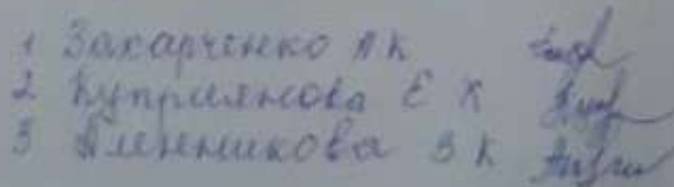 1 Захарченко А К
2 Куприянова Е К
3 Аленникова З К